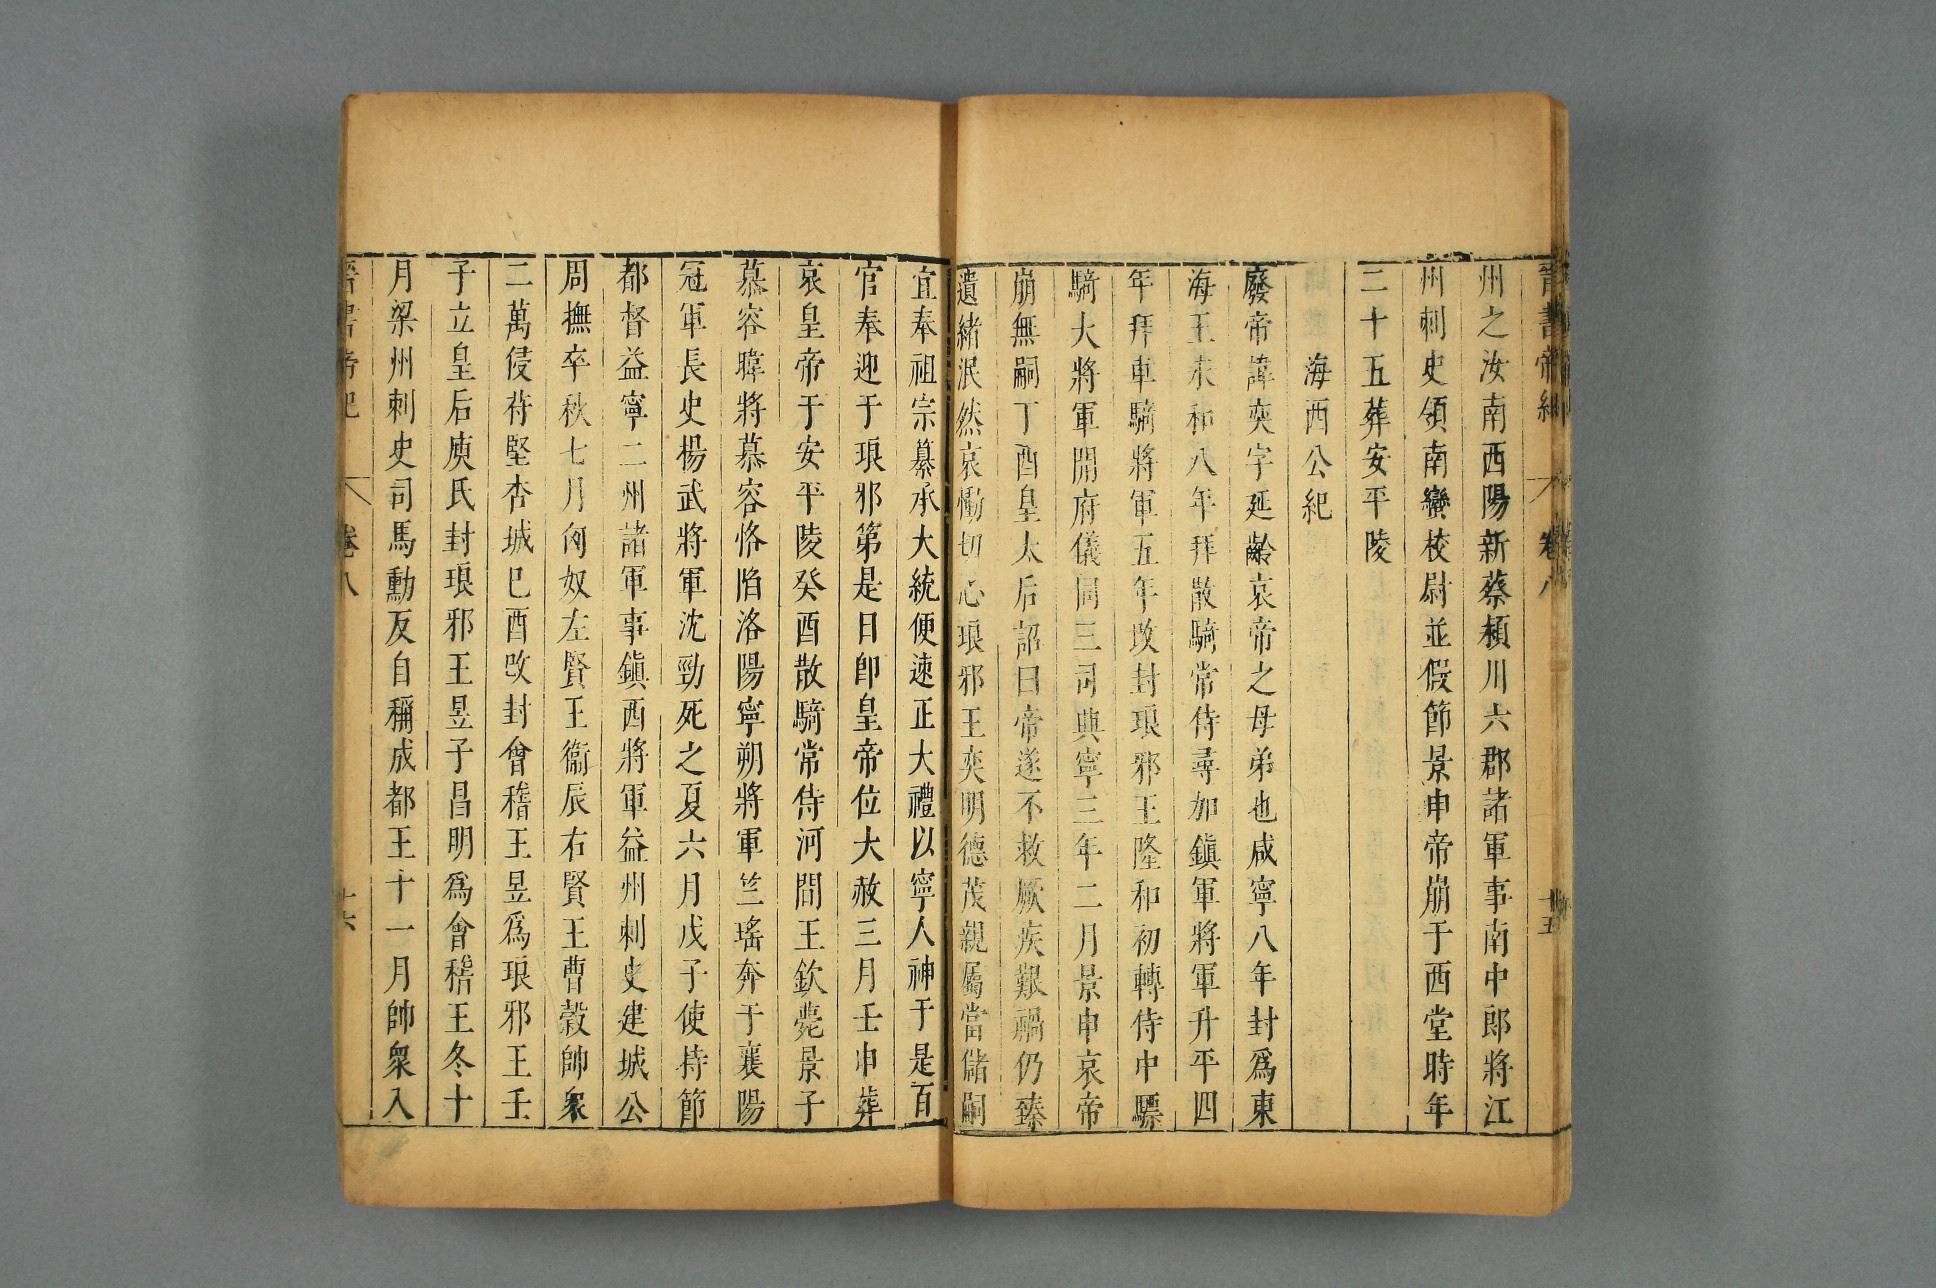 晉書帝紀　卷八　十五
州之汝南西陽新蔡潁川六郡諸軍事南中郎將江
州刺史領南蠻校尉並假節景申帝崩于西堂時年
二十五葬安平陵
海西公紀
廢帝諱奕字延齡哀帝之母弟也咸寧八年封爲東
海王永和八年拜散騎常侍尋加鎮軍將軍升平四
年拜車騎將軍五年改封琅邪王隆和初轉侍中驃
騎大將軍開府儀同三司興寧三年二月景申哀帝
崩無嗣丁酉皇太后詔曰帝遂不救厥疾艱禍仍臻
遺緒泯然哀慟切心琅邪王奕明德茂親屬當儲嗣
宜奉祖宗纂承大統便速正大禮以寧人神于是百
官奉迎于琅邪第是日卽皇帝位大赦三月壬申葬
哀皇帝于安平陵癸酉散騎常侍河間王欽薨景子
慕容暐將慕容恪陷洛陽寧朔將軍竺瑤奔于襄陽
冠軍長史楊武將軍沈勁死之夏六月戊子使持節
都督益寧二州諸軍事鎮西將軍益州刺史建城公
周撫卒秋七月匈奴左賢王衞辰右賢王曹穀帥衆
二萬侵苻堅杏城巳酉改封會稽王昱爲琅邪王壬
子立皇后庾氏封琅邪王昱子昌明爲會稽王冬十
月梁州刺史司馬勳反自稱成都王十一月帥衆入
晉書帝紀　卷八　十六